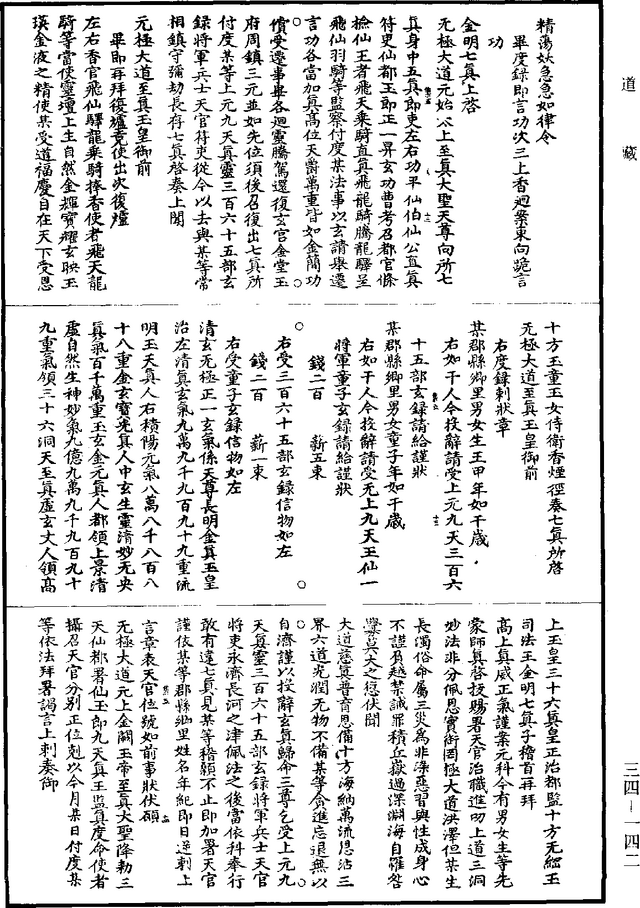 道藏
精蕩妖急急如律令
畢度録即言功次三上香迴案東向跪言
功
金明七真上啓
无極大道元始上至真大聖天尊向所七
真身中五真即吏左右功平仙伯仙公直真
符吏仙都玉郎正一昇玄功曹考召都官條
檢仙王者飛天乘騎直真飛龍騎騰龍驛呈
飛仙羽騎等監察付度某法事以玄請舉遷
言功各當加真髙位天爵萬重皆如金簡功
償受遷事畢各迴靈騰駕還復玄宫金堂玉
府周鎮三元並如先位須後召復出七真所
付度某等上元九天真靈三百六十五部玄
録將軍兵士天官符吏從今以去與某等常
相鎮守彌劫長存七真啓奏上聞
元極大道至真玉皇御前
畢即再拜復爐竟使出次復爐
左右香官飛仙驛龍乘騎捧香使者飛天龍
騎等當使靈壇上生自然金輝寶耀玄映玉
瑛金液之精使某受道福慶自在天下受恩
十方玉童玉女侍衛香煙徑奏七真所啓
无極大道至真玉皇御前
右度録刺狀章
某郡縣鄉里男女生王甲年如干歲
右如干人今投辭請受上元九天三百六
十五部玄録請給謹狀
某郡縣鄉里男女童子年如干歲
右如干人今投辭請受无上九天王仙一
將軍童子玄録請給謹狀
錢二百　薪五束
右受三百六十五部玄録信物如左
錢二百　薪一束
右受童子玄録信物如左
清玄无極正一玄氣係天尊長明金真玉皇
治左清真玄氣九萬九千九百九十九重流
明玉天真人右積陽元氣八萬八千八百八
十八重金玄寶光真人中玄生靈清妙无央
真氣百千萬重玉玄金元真人都領上景清
虛自然生神妙氣九億九萬九千九百九十
九重氣領三十六洞天至真虛玄丈人領高
上玉皇三十六真皇正治都監十方无極玉
司法王金明七真子稽首再拜
高上真威正氣謹案元科今有男女生等先
蒙師真啓授賜署天官治職進叨上道三洞
妙法非分佩恩實銜罔極大道洪澤但某生
長濁俗命屬三災為非染惡習與性成身心
不謹負越禁誡罪積丘嶽過深淵海自罹咎
釁莫大之愆伏聞
大道慈真普育恩備十方海納萬流恩沾三
界六道光潤无物不備某等貪進忘退無以
自濟謹以投辭玄真歸命三尊乞受上元九
天真靈三百六十五部玄録將軍兵士天官
將吏永濟長河之津佩法之後當依科奉行
敢有違七真見某等稽顙不止即加署天官
謹依某等郡縣鄉里姓名年紀即日逆刺上
言章表天官位號如前事狀伏願
无極大道元上金闕玉帝至真大聖降勑三
天仙都署仙玉郎九天真王監真度命使者
攝召天官分别正位剋以今月某日付度某
等依法拜署謁言上刺奏御
三四—一四二